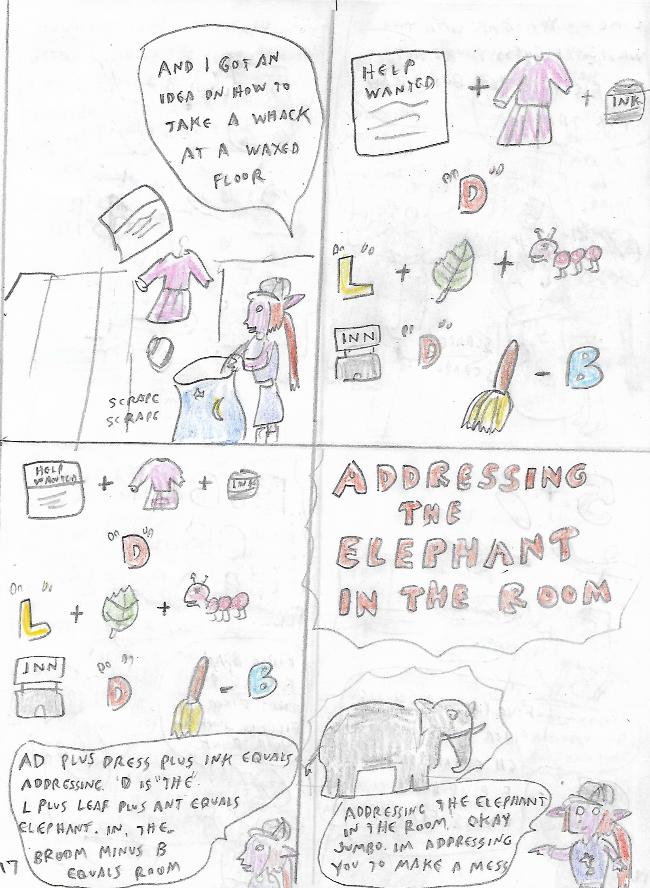 AND I GOT AN
IDEA ON HOW TO
TAKE A WHACK
AT A WAXED
FLOOR
SCRAPE
SCRAPE
HELP
WANTED
+
+
INK
"D"
"L" + +
INN
"D"
- B
HELP
WANTED
+
+
INK
"D"
"L" + +
INN
"D"
- B
AD PLUS DRESS PLUS INK EQUALS
ADDRESSING. "D IS "THE".
L PLUS LEAF PLUS ANT EQUALS
ELEPHANT. IN. THE.
BROOM MINUS B
EQUALS ROOM
17
ADDRESSING
THE
ELEPHANT
IN THE ROOM
ADDRESSING THE ELEPHANT
IN THE ROOM. OKAY
JUMBO. IM ADDRESSING
YOU TO MAKE A MESS